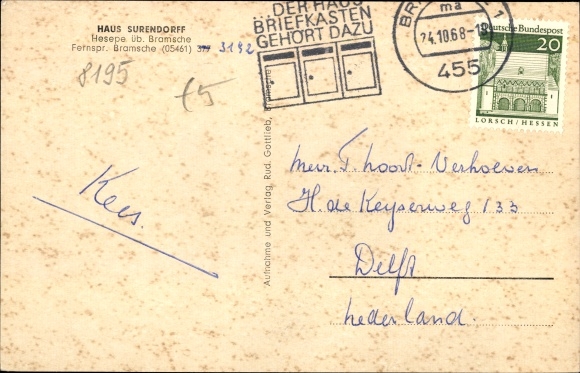 HAUS SURENDORFF
Hesepe üb. Bramsche
Fernspr. Bramsche (05461) 3192
8195
£5
DER HAUS
BRIEFKASTEN
GEHÖRT DAZU
BR 1
ma
24.10.68-18
455
Deutsche Bundespost
20
LORSCH/HESSEN
Aufnahme und Verlag Rud. Gottlieb, Bramsche
Kees.
Mevr. T. Noort-Verhoeven
H. de Keyserweg 133
Delft
Nederland.